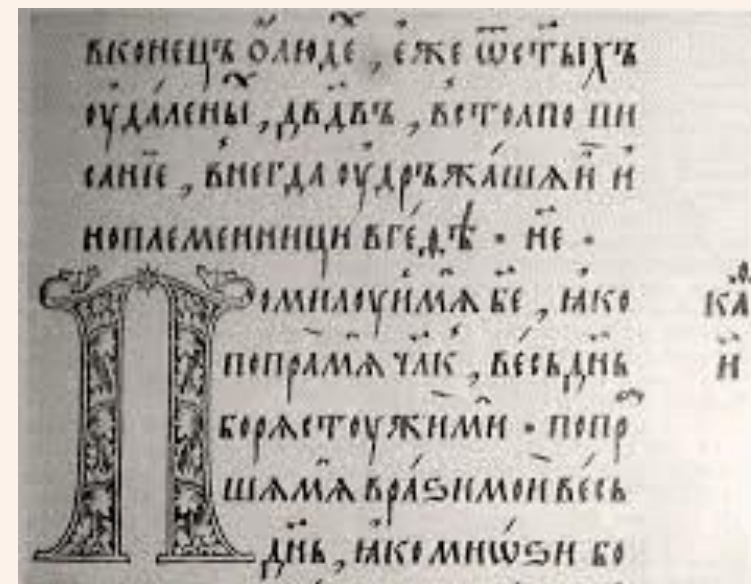 вконецъ ѡ҆людє҄, є҆же ѿст҃ыхъ
ѹ҆дале́ны, дв҃двъ, встолпо пи
санїе, внегда ѹ҆дръжа́шѧи и҆
ноплеменници вге́ѳѣ · н҃е ·
Помилѹи҆мѧ бж҃е, ꙗ҆ко
попра́мѧ чл҃къ, ве́сьдн҃ь
борѧстѹжи́ми · попр
шѧмѧ врази́мои ве́сь
дн҃ь, ꙗ҆комнѡ́ѕи бо
ка
и҆